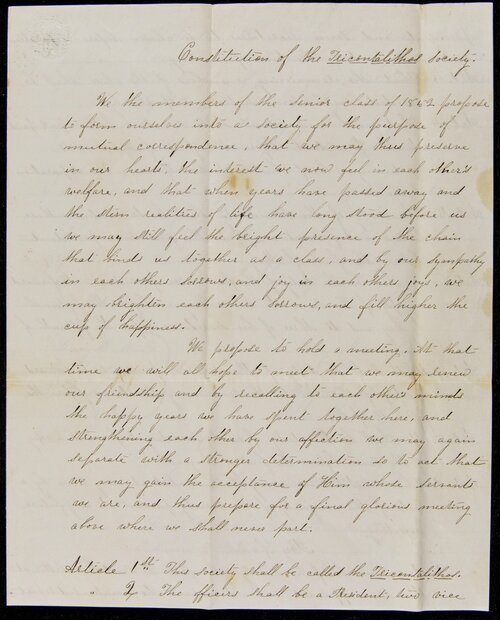 Constitution of the Tricontalithos society.
We the members of the senior class of 1852 propose
to form ourselves into a society for the purpose of
mutual correspondence, that we may thus preserve
in our hearts, the interest we now feel in each other's
welfare, and that when years have passed away and
the stern realities of life have long stood before us
we may still feel the bright presence of the chain
that binds us together as a class, and by our sympathy
in each others sorrows, and joy in each others joys, we
may brighten each others sorrows, and fill higher the
cup of happiness.
We propose to hold a meeting. At that
time we will all hope to meet that we may renew
our friendship and by recalling to each other's minds
the happy years we have spent together here, and
strengthening each other by our affection we may again
separate with a stronger determination so to act that
we may gain the acceptance of Him whose servants
we are, and thus prepare for a final glorious meeting
above where we shall never part.
Article 1st. This society shall be called the Tricontalithos.
" 2 The officers shall be a President, two vice